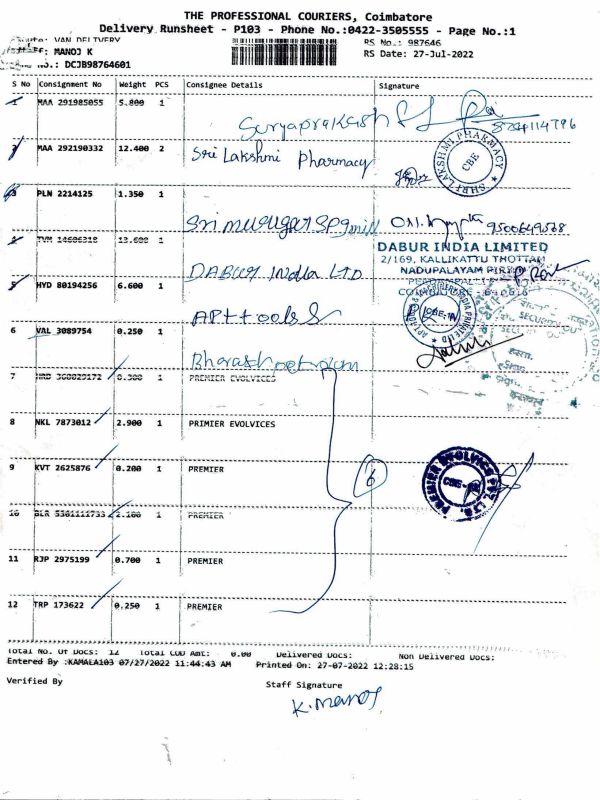 THE PROFESSIONAL COURIERS, Coimbatore
Delivery Runsheet - P103 - Phone No.:0422-3505555 - Page No.:1
VAN DELIVERY
RS No.: 987646
MANOJ K
RS Date: 27-Jul-2022
No.: DCJB98764601
S No Consignment No Weight PCS Consignee Details Signature
1 MAA 291985055 5.800 1
Suryaprakash
2 MAA 292190332 12.400 2 Sri Lakshmi Pharmacy
SHRI LAKSHMI PHARMACY
CBE
3 PLN 2214125 1.350 1
Sri murugar SP9mill
9500649568
4 TVM 14606318 13.600 1
DABUR INDIA LIMITED
2/169, KALLIKATTU THOTTAM
NADUPALAYAM PIRIVU
DABUR India LTD
5 HYD 80194256 6.600 1
APT tools
6 VAL 3089754 0.250 1
SECURITY
Bharath petroleum
7 HRD 300829172 0.300 1 PREMIER EVOLVICES
8 NKL 7873012 2.900 1 PRIMIER EVOLVICES
9 KVT 2625876 0.200 1 PREMIER
6
PREMIER EVOLVICS PVT LTD.
10 BLR 5301111733 2.100 1 PREMIER
11 RJP 2975199 0.700 1 PREMIER
12 TRP 173622 0.250 1 PREMIER
Total No. Of Docs: 12 Total COD Amt: 0.00 Delivered Docs: Non Delivered Docs:
Entered By :KAMALA103 07/27/2022 11:44:43 AM Printed On: 27-07-2022 12:28:15
Verified By
Staff Signature
K. Manoj